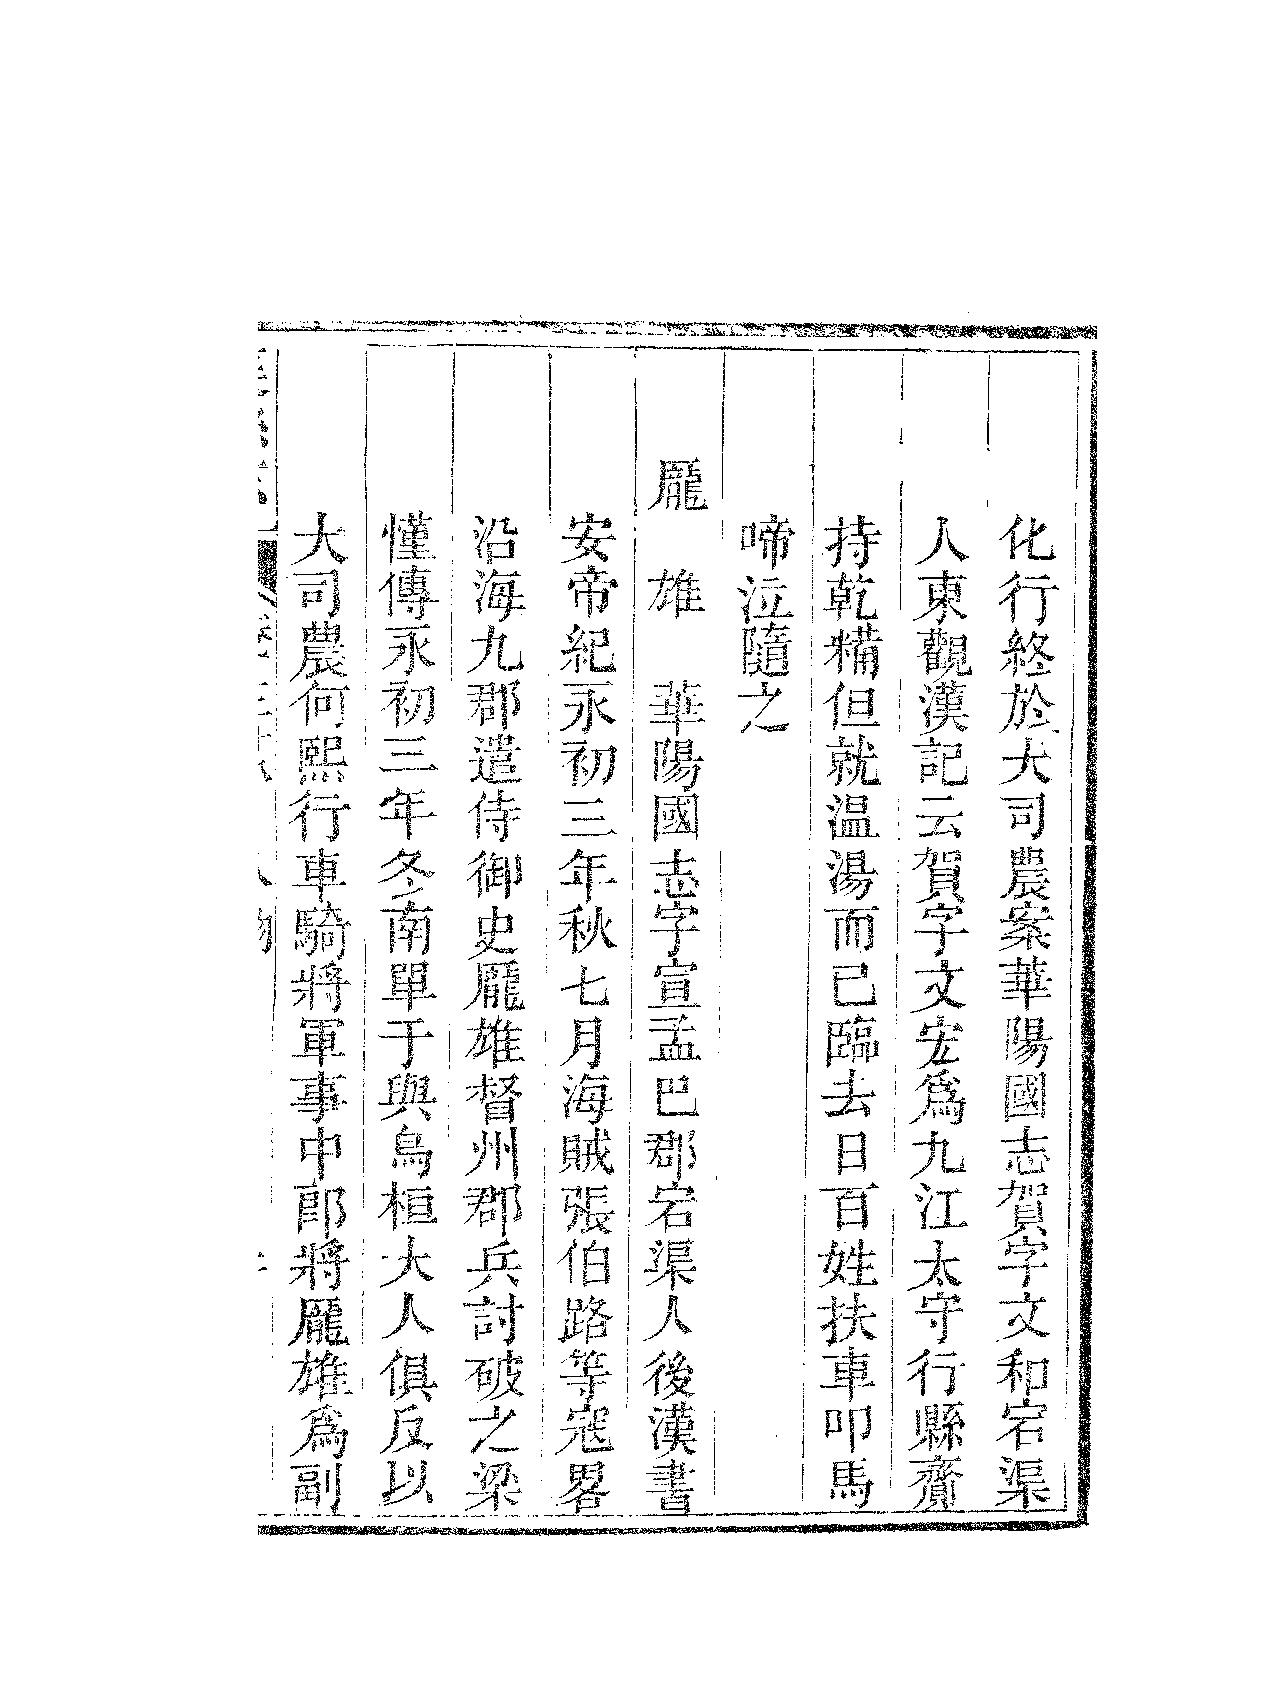 化行終於大司農案華陽國志賀字文和宕渠
人東觀漢記云賀字文宏爲九江太守行縣齎
持乾糒但就温湯而已臨去日百姓扶車叩馬
啼泣隨之
龎　雄　華陽國志字宣孟巴郡宕渠人後漢書
安帝紀永初三年秋七月海賊張伯路等寇畧
沿海九郡遣侍御史龎雄督州郡兵討破之梁
慬傳永初三年冬南單于與烏桓大人俱反以
大司農何熙行車騎將軍事中郎將龎雄爲副